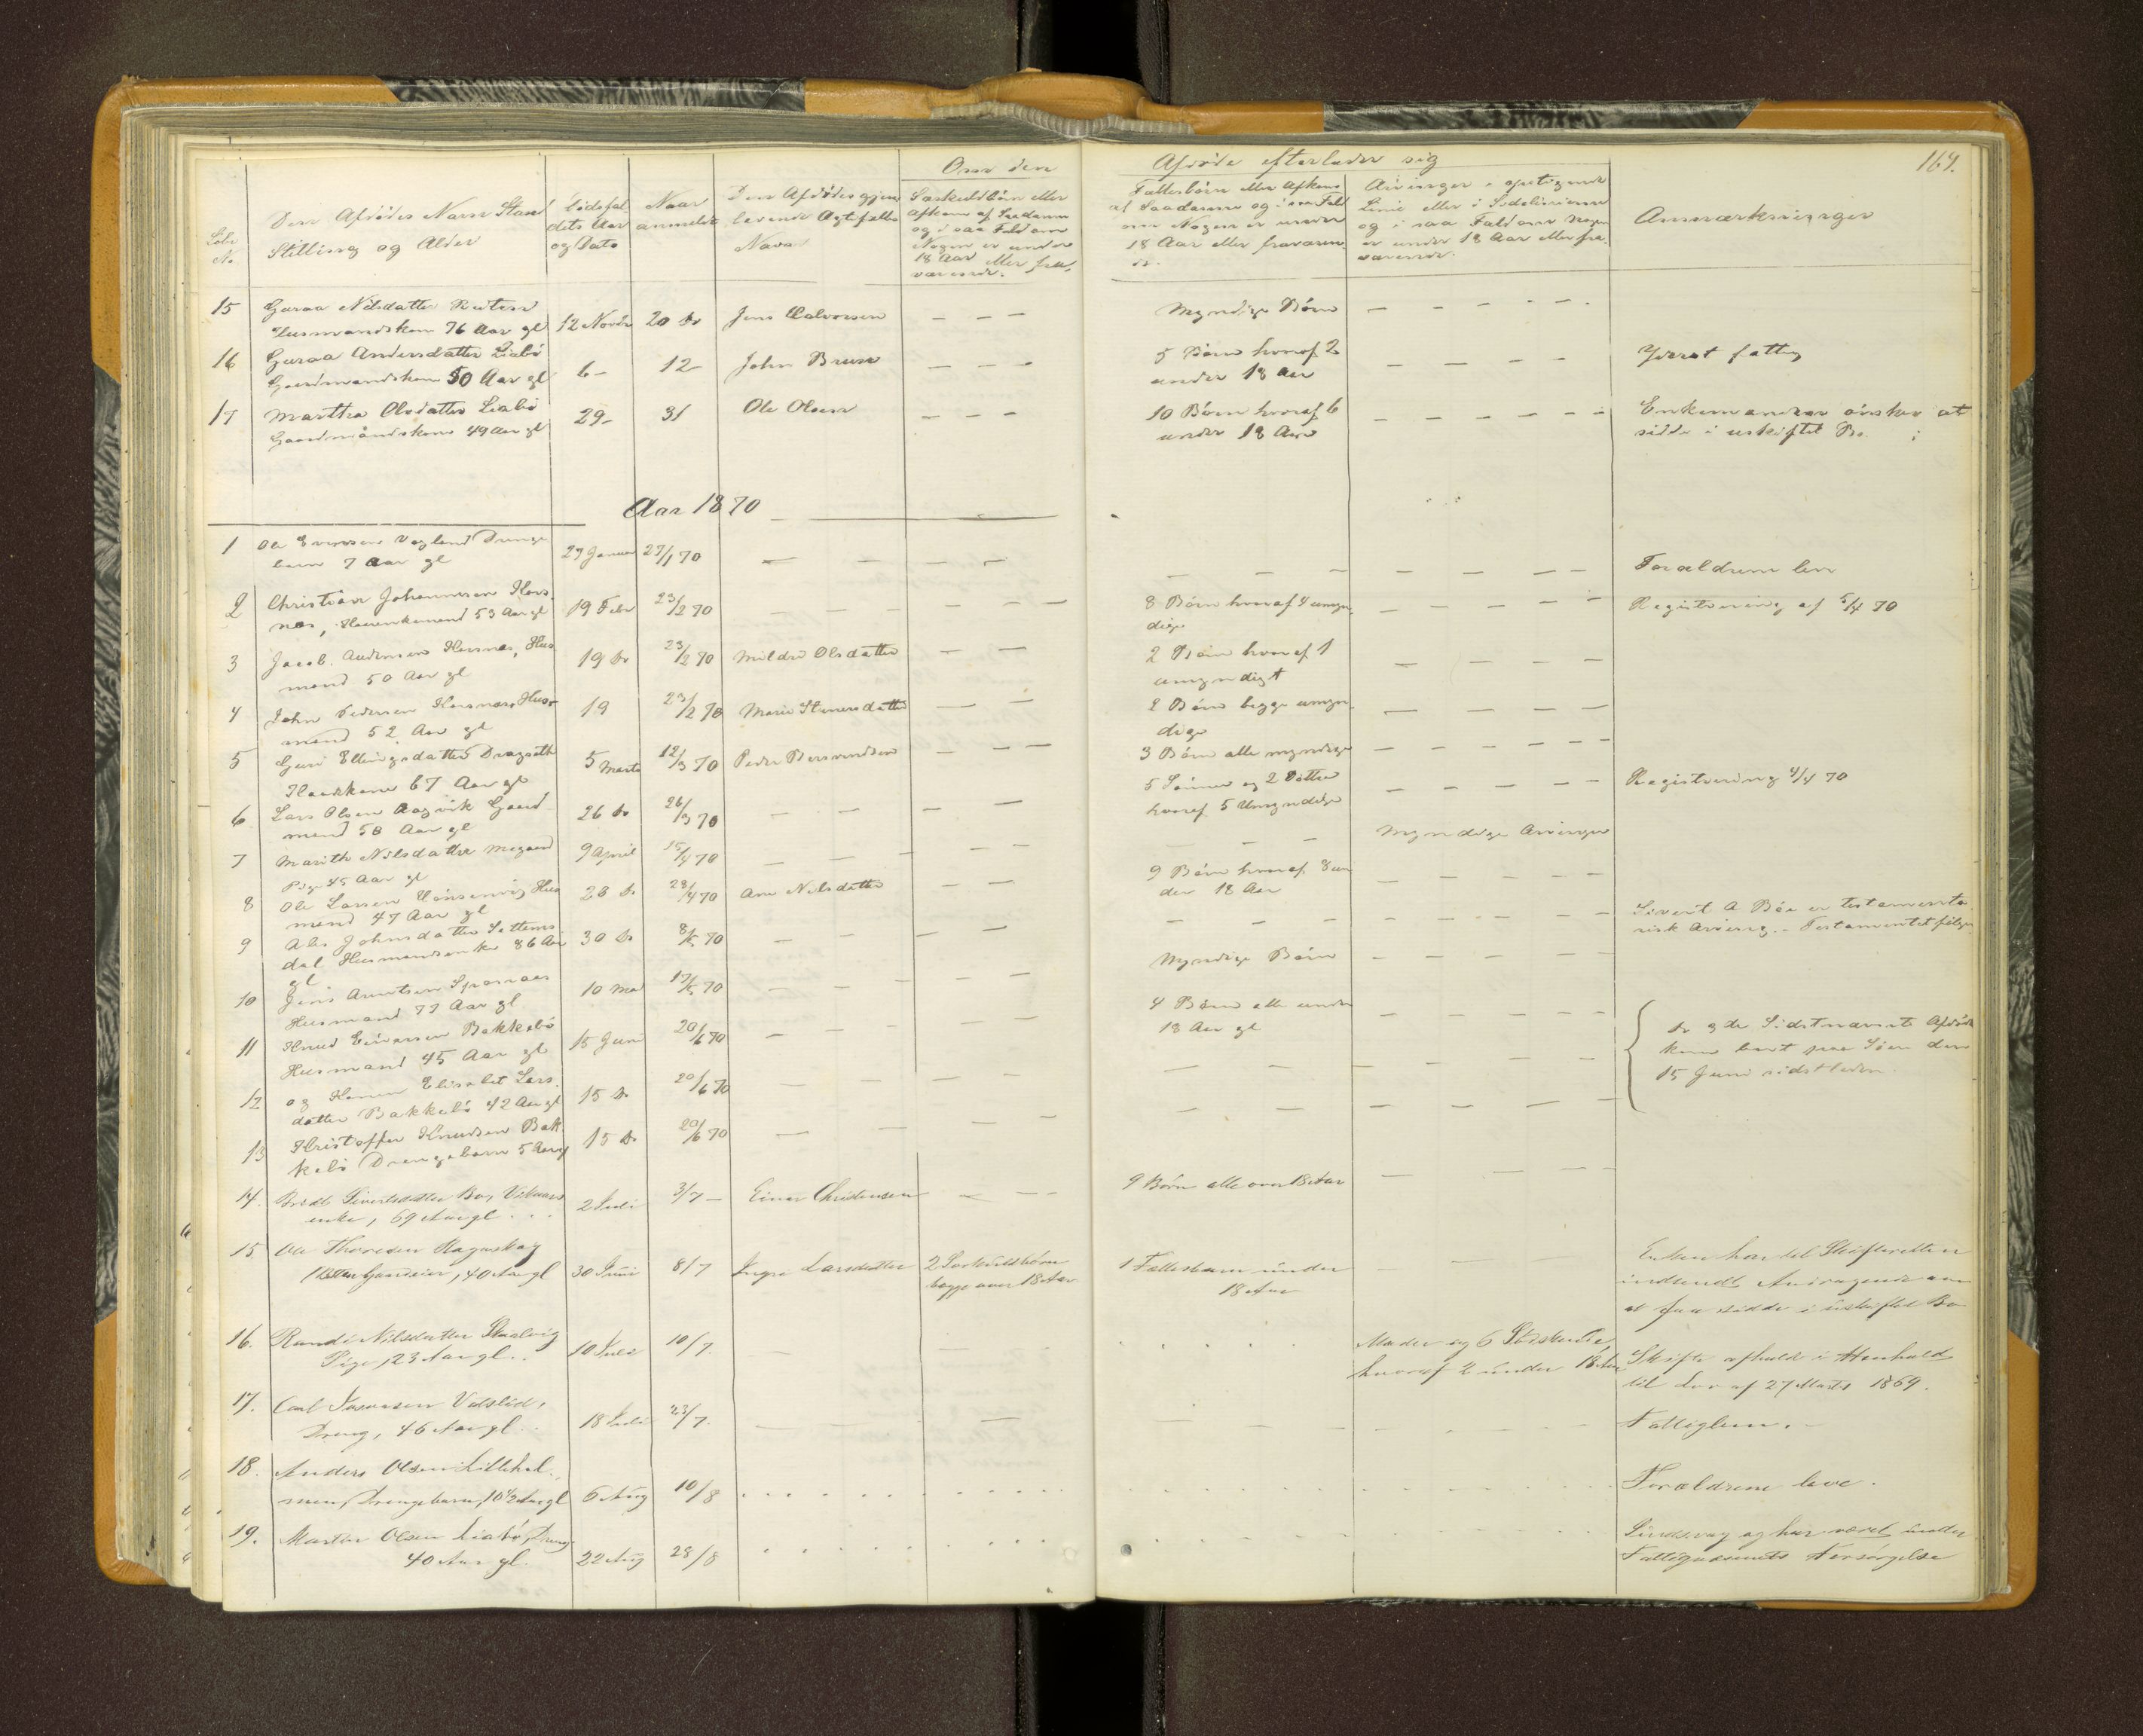 Om den
Afdøde efterlader sig
164.
Løbe
N.
Den Afdødes Navn Stand
Stilling og Alder
Dødsfal
dets Aar
og Dato
Naar
anmeldt
Den Afdødes gjen
levende Ægtefælles
Navn
Særkuldbørn eller
Afkom af Saadanne
og i saa Fald om
Nogen er under
18 Aar eller fra,
værende.
Fællesbørn eller Afkom
af Saadanne og i saa Fald
om Nogen er under
18 Aar eller fraværen,
de.
Arvinger i opstigende
Linie eller i Sidelinierne
og i saa Fald om Nogen
er under 18 Aar eller fra,
værende.
Anmærkninger
15 Guraa Nilsdatter
Husmandskone 76 Aar gl 12 Novbr 20 Do Jens Halvorsen — — — Myndige Børn — — — — —
16 Guraa Andersdatter Liabø
Gaardmandskone 50 Aar gl 6- 12- John — — — 5 Børn hvoraf 2
under 18 Aar — — — — — Yderst fattig
17 Martha Olsdatter Liabø
Gaardmandskone 49 Aar gl 29- 31 Ole Olsen — — — 10 Børn hvoraf 6
under 18 Aar — — — — — Enkemanden ønsker at
sidde i uskiftet Bo.
Aar 1870
1 Ole Vagland Drenge
barn 7 Aar gl 27 Januar 27/1 70 — — — — — — — — — — — Forældrene lever
2 Christian Johannesen Hors
nes, 53 Aar gl 19 Febr 23/2 70 — — — — — — 8 Børn hvoraf 4 umyn,
dige — — — — Registrering af 5/4 70
3 Jacob Andersen Hosnes, Hus
mand 50 Aar gl 19 Do 23/2 70 Mildri Olsdatter — — 2 Børn hvoraf 1
umyndigt — — — —
4 John Pedersen Horsnes, Hus
mand 52 Aar gl 19 23/2 70 Marie Stenersdatter — — 2 Børn begge umyn,
dige — — — —
5 Guri Ellingsdatter Dragseth
67 Aar gl 5 Marts 12/3 70 Peder — — — 3 Børn alle myndige — — — — —
6 Lars Olsen Aagvik Gaard
mand 58 Aar gl 26 Do 26/3 70 — — — — 5 Sønner og 2 Døttre
hvoraf 5 Umyndige — — — — — Registrering 4/4 70
7 Marith Nilsdatter Megaard
Pige 45 Aar gl 9 April 15/4 70 — — — — — — — — Myndige Arvinger
8 Ole Larsen Hønsvig Hus
mand 47 Aar gl 28 Do 28/4 70 Ane Nilsdatter — — 9 Børn hvoraf 8 un
der 18 Aar — — — — —
9 Ales Johnsdatter Settems
dal Husmandsenke 86 Aar
gl 30 Do 8/5 70 — — — — — — — — — — — — Sivert A Bøe er testamenta
risk Arving. - Testamentet følger
10 Jens Arentsen
Husmand 77 Aar gl 10 Mai 17/5 70 — — — — Myndige Børn — — — — —
11 Knud Bakkebø
Husmand 45 Aar gl 15 Juni 20/6 70 — — — — 4 Børn alle under
18 Aar gl — — — — —
12 og Konen Elisabet Lars
datter Bakkebø 42 Aar gl 15 Do 20/6 70 — — — — — — — — — — — —
13 Kristoffer Knudsen Bak
kebø Drengebarn 5 Aar gl 15 Do 20/6 70 — — — — — — — — — — — —
De 3de Sidstnævnte Afdøde
kom bort paa Søen den
15 Juni sidstleden.
14. Sivertsdatter Bøe,
enke, 69 Aar gl . . . 2 Juli 3/7 — Einar Christensen — — — 9 Børn alle over 18 Aar — — —
15 Ole Thoresen Hagaskog
Gaardeier, 40 Aar gl 30 Juni 8/7 Inga Larsdatter 2 Særkuldsbørn
begge over 18 Aar 1 Fællesbarn under
18 Aar — — — Enken har til Skifteretten
indsendt Andragende om
at faa sidde i uskiftet Bo
16. Randi Nilsdatter
Pige, 23 Aar gl. . 10 Juli 10/7. — — — . . . . Moder og 6 Sødskende
hvoraf 2 under 18 Aar Skifte afholdt i Henhold
til Lov af 27 Marts 1869.
17. Carl Vatslid,
Dreng, 46 Aar gl . . 18 Juli 23/7. — — — — — — — Fattiglem. -
18. Anders Olsen Lillehol
men, Drengebarn, 10 1/2 Aar gl 6 Aug 10/8 . . . . . . . . . . . . Forældrene leve.
19. Martin Olsen Liabø, Dreng
40 Aar gl. 22 Aug 28/8 . . . . . . . . . . . . Sindsvag og har været under
Fattigvæsenets Forsørgelse